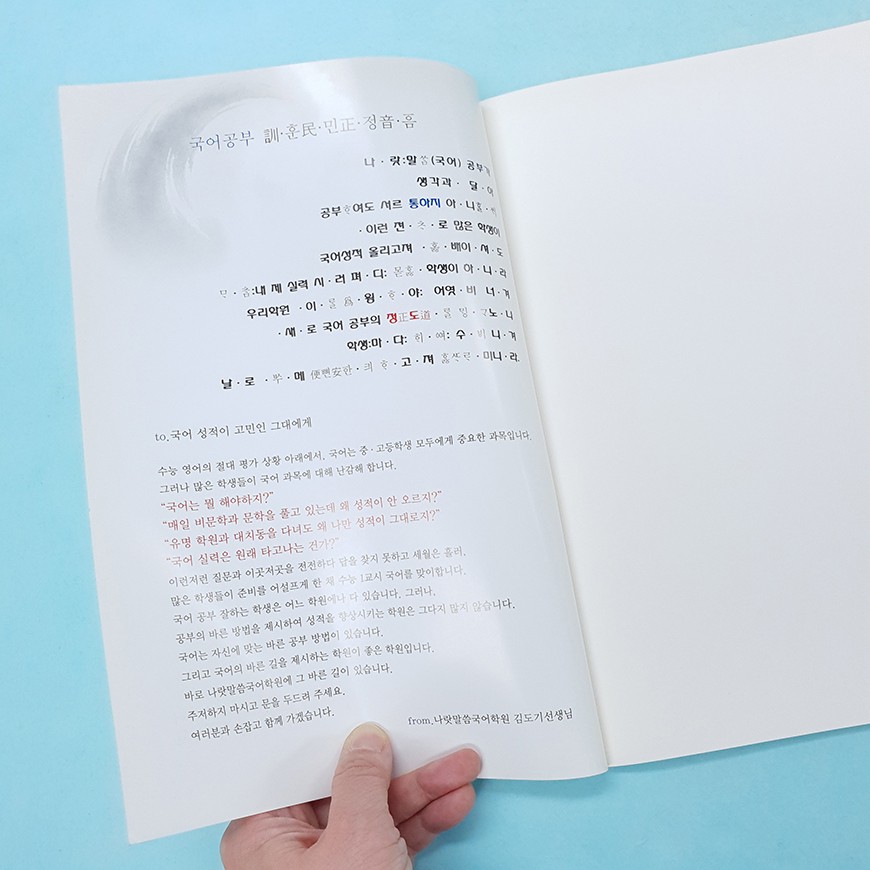 국어공부 訓·훈民·민正·정音·흠
나·랏:말씀(국어) 공부
생각과· 달·아
공부ᄒᆞ여도 서르 통아지 아·니
·이런 젼·ᄎᆞ·로 많은 학생이
국어성적 올리고져 ·홇·배이·셔·도
ᄆᆞᆺ·ᄎᆞᆷ:내 제 실력 시·러 펴·디:몯홇·학생이 아·니·라
우리학원 ·이·ᄅᆞᆯ 爲·윙·ᄒᆞ·야: 어엿·비 너·겨
·새·로 국어 공부의 정正도道·ᄅᆞᆯ 밍·ᄀᆞ노·니
학생:마·다: ᄒᆡ·ᅇᅧ: 수·ᄫᅵ 니·겨
날·로 ·ᄡᅮ·메 便뼌安한·킈 ᄒᆞ·고·져 ᄒᆞᇙᄯᆞᄅᆞ·미니·라.
to.국어 성적이 고민인 그대에게
수능 영어의 절대 평가 상황 아래에서, 국어는 중·고등학생 모두에게 중요한 과목입니다.
그러나 많은 학생들이 국어 과목에 대해 난감해 합니다.
“국어는 뭘 해야하지?”
“매일 비문학과 문학을 풀고 있는데 왜 성적이 안 오르지?”
“유명 학원과 대치동을 다녀도 왜 나만 성적이 그대로지?”
“국어 실력은 원래 타고나는 건가?”
이런저런 질문과 이곳저곳을 전전하다 답을 찾지 못하고 세월은 흘러,
많은 학생들이 준비를 어설프게 한 채 수능 1교시 국어를 맞이합니다.
국어 공부 잘하는 학생은 어느 학원에나 다 있습니다. 그러나,
공부의 바른 방법을 제시하여 성적을 향상시키는 학원은 그다지 많지 않습니다.
국어는 자신에 맞는 바른 공부 방법이 있습니다.
그리고 국어의 바른 길을 제시하는 학원이 좋은 학원입니다.
바로 나랏말씀국어학원에 그 바른 길이 있습니다.
주저하지 마시고 문을 두드려 주세요.
여러분과 손잡고 함께 가겠습니다.
from.나랏말씀국어학원 김도기선생님